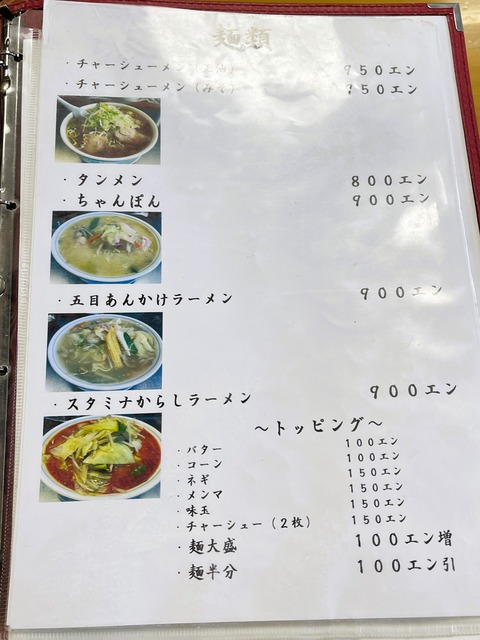 麺類
・チャーシューメン（正油） 950エン
・チャーシューメン（みそ） 950エン
・タンメン 800エン
・ちゃんぽん 900エン
・五目あんかけラーメン 900エン
・スタミナからしラーメン 900エン
～トッピング～
・バター 100エン
・コーン 100エン
・ネギ 150エン
・メンマ 150エン
・味玉 150エン
・チャーシュー（2枚） 150エン
・麺大盛 100エン増
・麺半分 100エン引